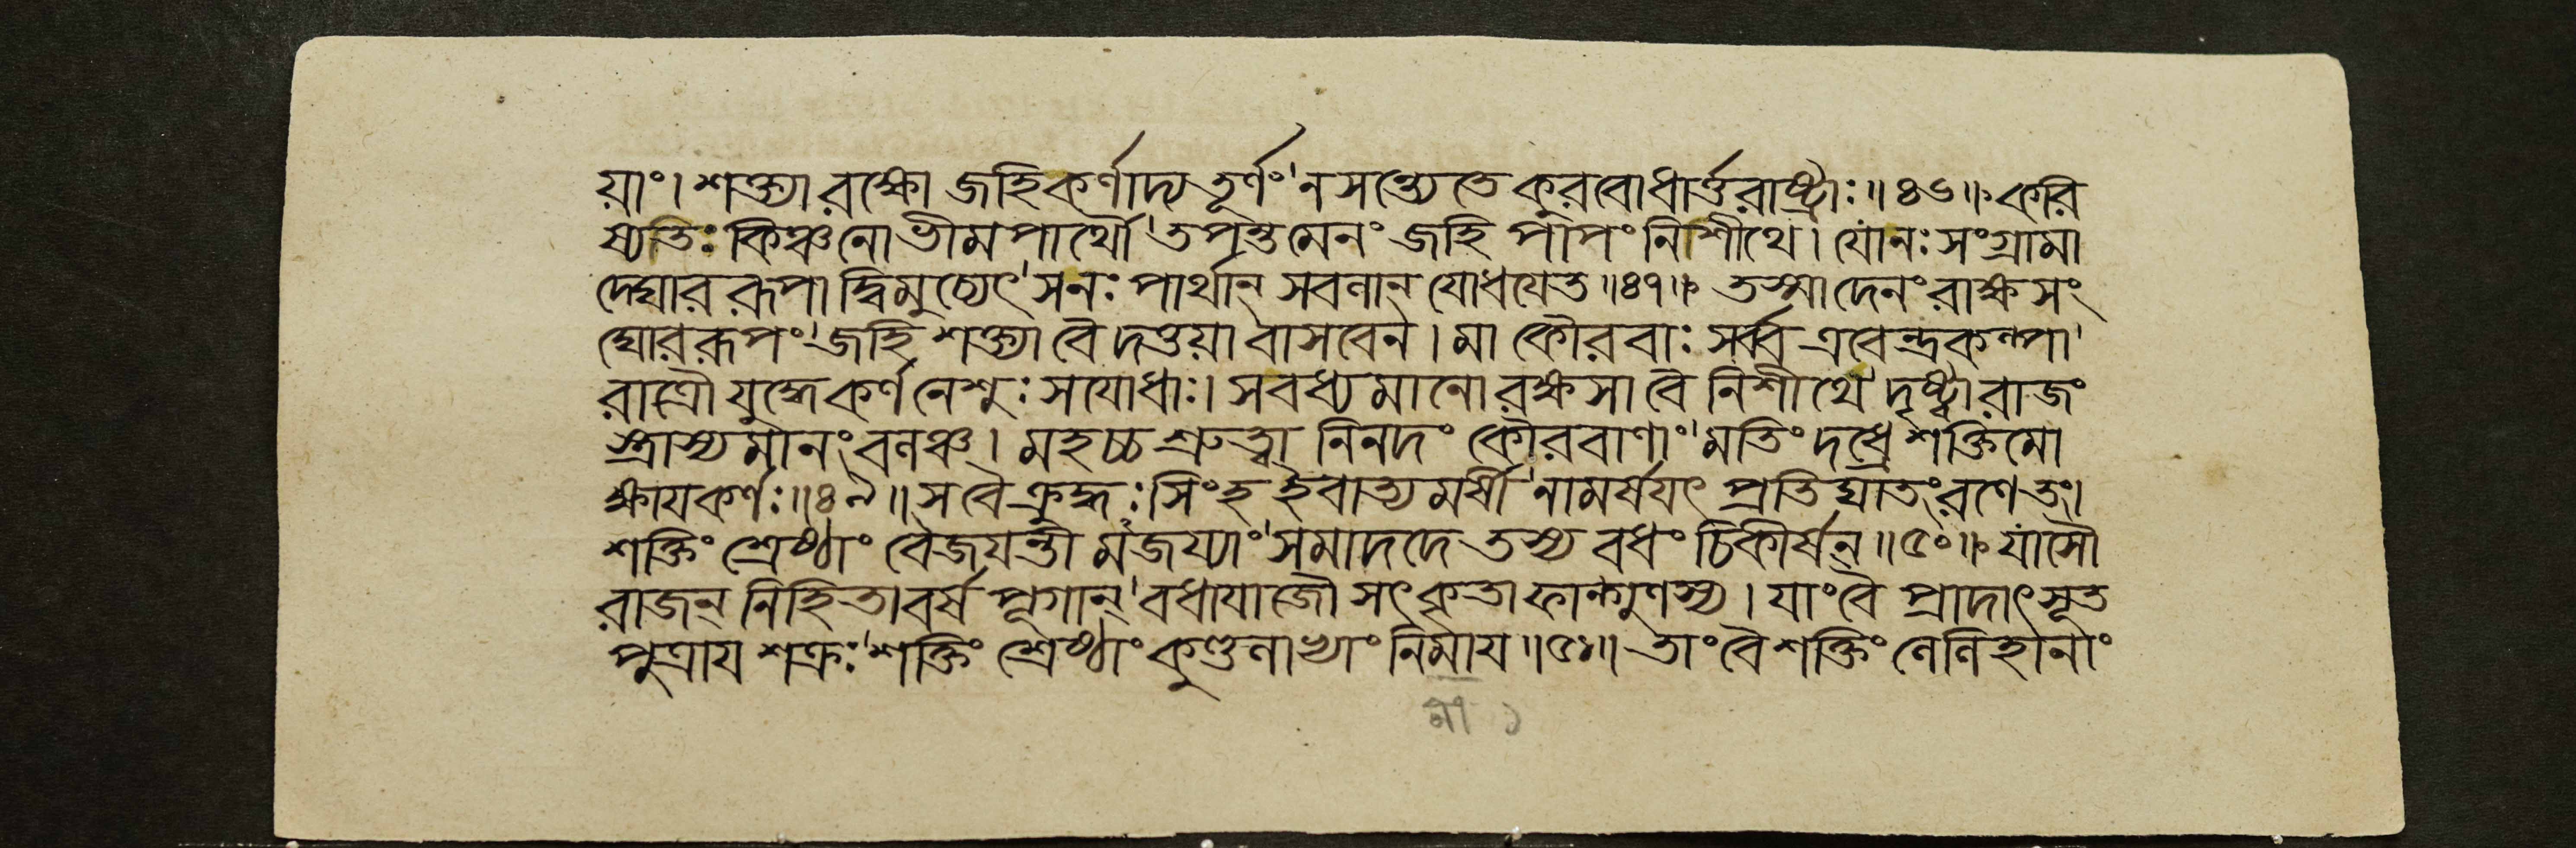 য়াং। শক্ত্যা রক্ষো জহি কর্ণাদ্য তূর্ণং' নসন্ত্যেতে কুরবো ধার্ত্তরাষ্ট্রাঃ॥ ৪৬॥ করি
ষ্যতিঃ কিঞ্চনো ভীমপার্থৌ' তপন্তমেনং জহি পাপং নিশীথে। যোনঃ সংগ্রামা
দেঘার রূপা দ্বিমুচ্যেৎ' সনঃ পার্থান্ সবলান্ যোধযেত॥ ৪৭॥ তস্মাদেনং রাক্ষসং
ঘোররূপং' জহি শক্ত্যা বৈ দত্তয়া বাসবেন। মা কৌরবাঃ সর্ব্ব এবেন্দ্রকল্পা'
রাত্রৌ যুদ্ধে কর্ণ নেশুঃ সযোধাঃ। স বধ্যমানো রক্ষসা বৈ নিশীথে' দৃষ্ট্বা রাজং
স্ত্রাস্যমানং বলঞ্চ। মহচ্চ শ্রুত্বা নিনদং কৌরবাণাং' মতিং দধ্রে শক্তিমো
ক্ষায কর্ণঃ॥ ৪৯॥ স বৈ ক্রুদ্ধঃ সিংহ ইবাত্যমর্ষী' নামর্ষযৎ প্রতিঘাতং রণে তং।
শক্তিং শ্রেষ্ঠাং বৈজযন্তী মজয্যাং' সমাদদে তস্য বধং চিকীর্ষন্॥ ৫০॥ যাসৌ
রাজন্ নিহিতা বর্ষপূগান্' বধাযাজৌ সৎকৃতা ফাল্গুণস্য। যাং বৈ প্রাদাৎ সূত
পুত্রায শক্রঃ' শক্তিং শ্রেষ্ঠাং কুণ্ডলাখ্যাং নিমায॥ ৫১॥ তাং বৈ শক্তিং লেলিহানাং